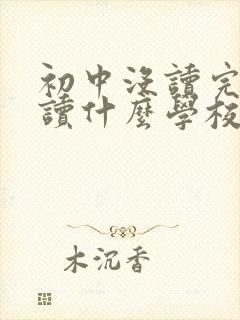 初中沒讀完
讀什麼學校
木沉香